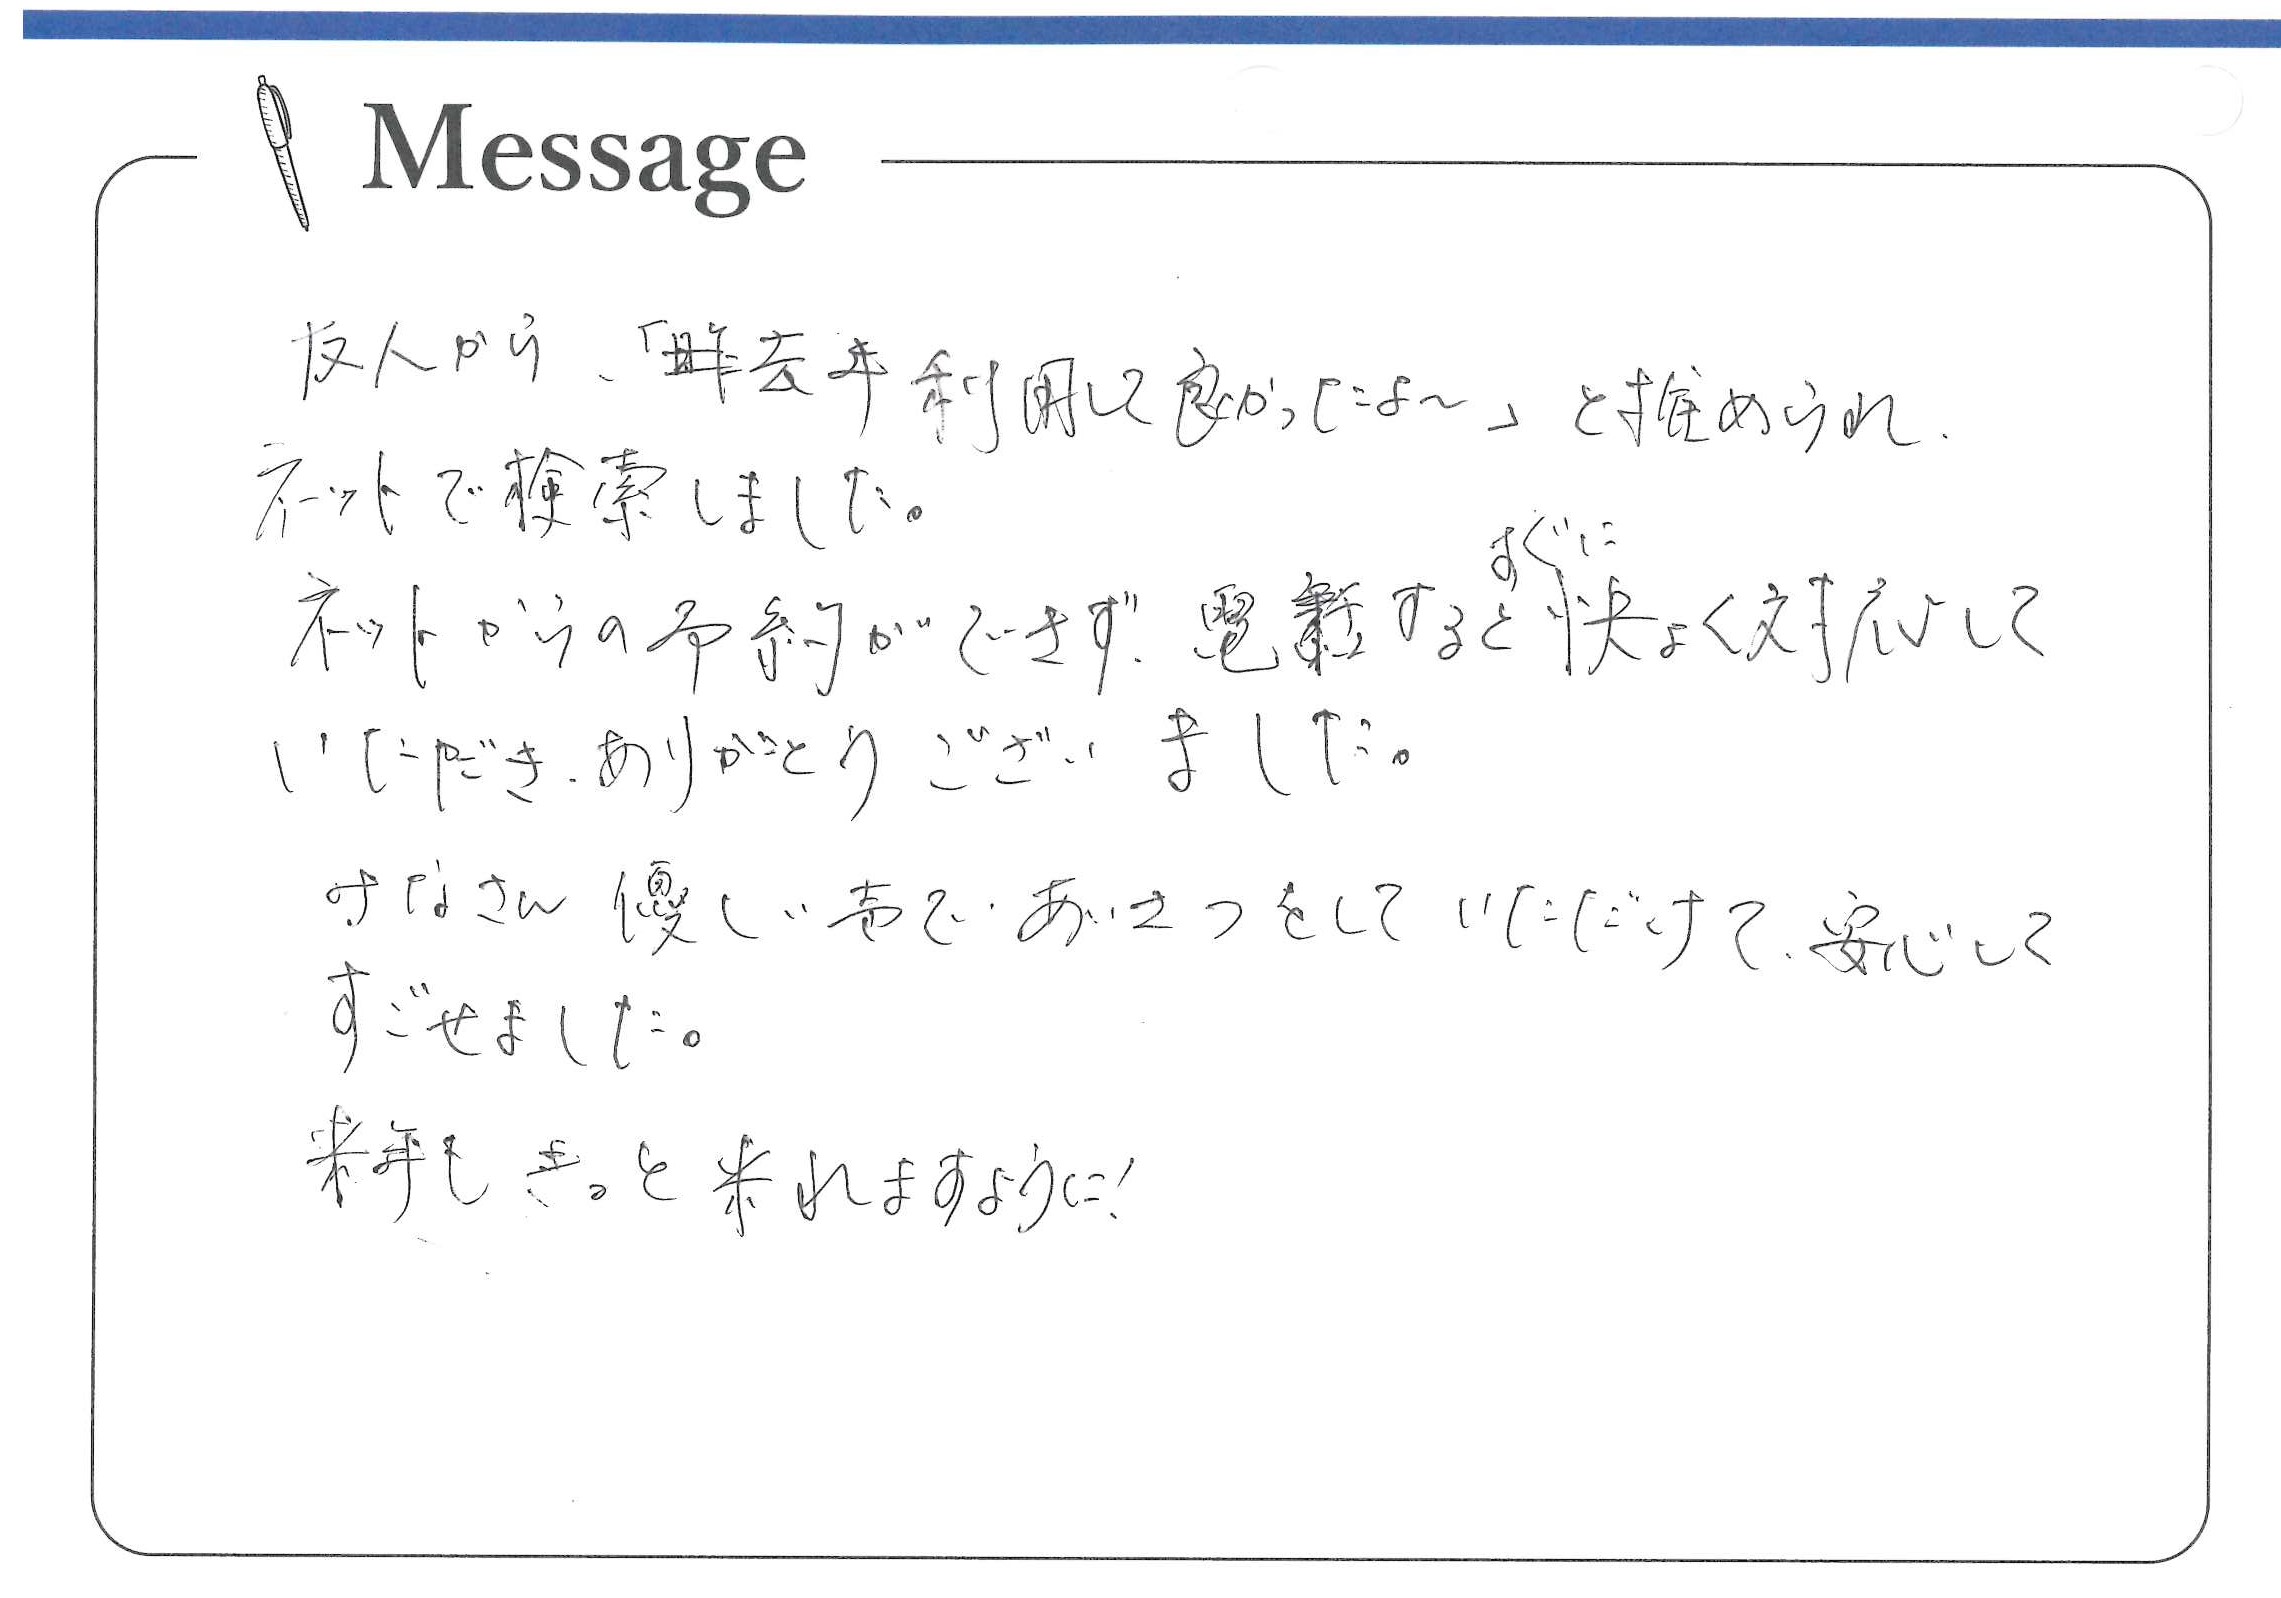 Message
友人から、「去年利用して良かったよ〜」と推められ、
ネットで検索しました。
ネットからの予約ができず、電話するとすぐに快よく対応して
いただき、ありがとうございました。
みなさん優しい声で、あいさつをしていただけて、安心して
すごせました。
来年もきっと来れますように!